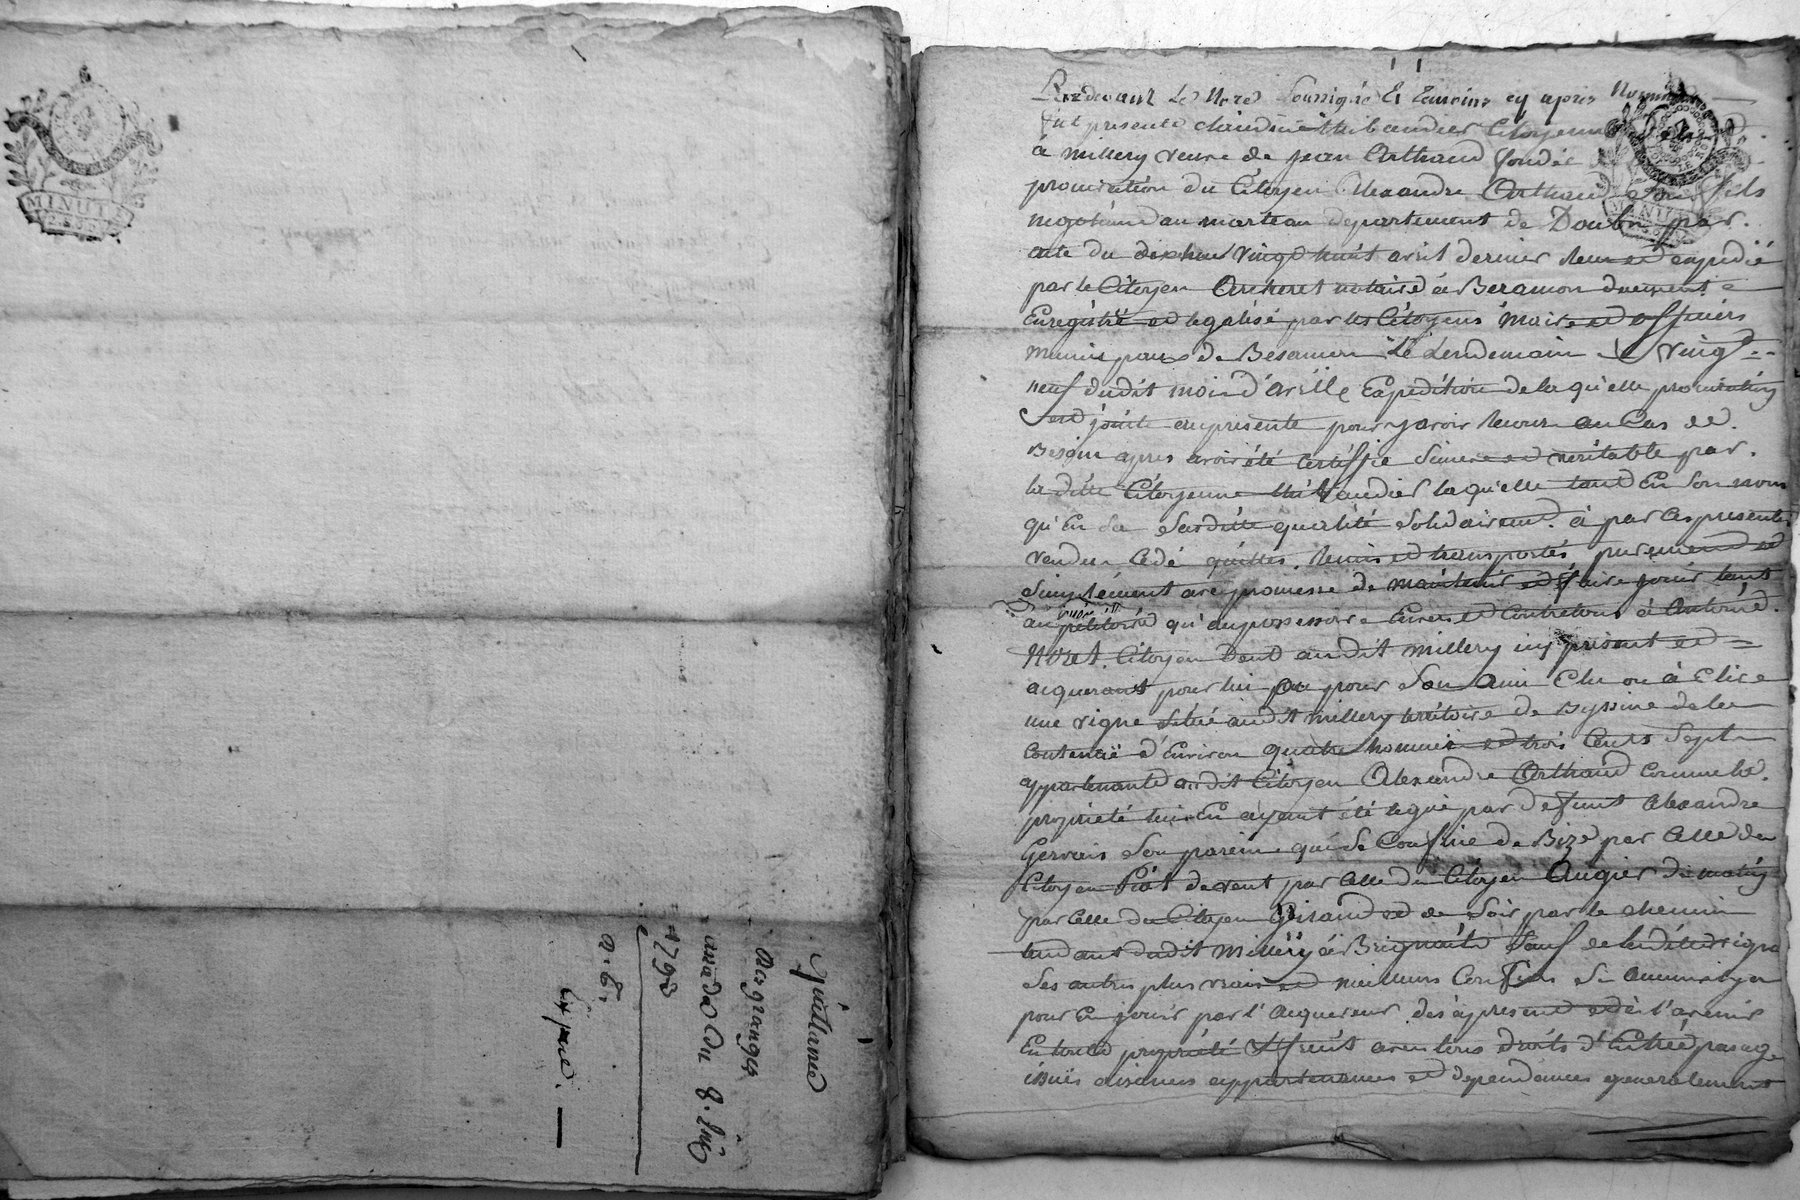 MINUTE
Quittance
desgranges
du 8.
1793
a. b.
Exped.
Pardevant Le Nore Soussigné Et temoins cy après Nommés
fut presente claudine thibaudier Citoyenne
à millery veuve de jean Arthaud fondée de
procuration du Citoyen Alexandre Arthaud son fils
negotiand au departement de Doubs par
acte du vingt huit avril dernier Reçu et expedié
par le Citoyen notaire à Besançon duement
Enregistré et legalisé par les Citoyens Maire et officiers
municipaux de Besançon Le Lendemain vingt
neuf dudit mois d'avrille Expedition de laqu'elle procuration
est jointe au presente pour y avoir Recours au Cas de
Besoin apres avoir été Certiffié Sincere et veritable par
la ditte Citoyenne thibaudier laqu'elle tant En Son nom
qu'En Sa Sasditte qualité Solidairement à par Ces presentes
vendu Cedé quittés Remis et transportés purement et
Simplement avec promesse de maintenir et faire jouir tant
au petitoire qu'au possessoire Envers et Contre tous à Antoine
Citoyen Dent audit millery icy présent et
aquerant pour lui ou pour Son Ami Elu ou à Elire
une vigne Situé audit millery territoire de Byssine de la
Contenüe d'Environ quatre hommés et trois Cents Sept
appartenante audit Citoyen Alexandre Arthaud comme la
proprieté lui En ayant été leguée par deffunt Alexandre
Gervais Son parein qui Se Confine de Bize par Celle du
Citoyen Piot de vent par Celle du Citoyen Augier de matin
par Celle du Citoyen Girand et de Soir par le chemin
tendant dudit Millery à Brignaite Sauf de laditte vigne
Ses autres plus vrais et meilleurs Confins Si aucuns y a
pour En jouir par l'Aquereur dès àpresent et à l'avenir
En toute proprieté et fruit avec tous droits d'Entrée pasage
issuës aisances appartenances et dependances generalement
MINUTE